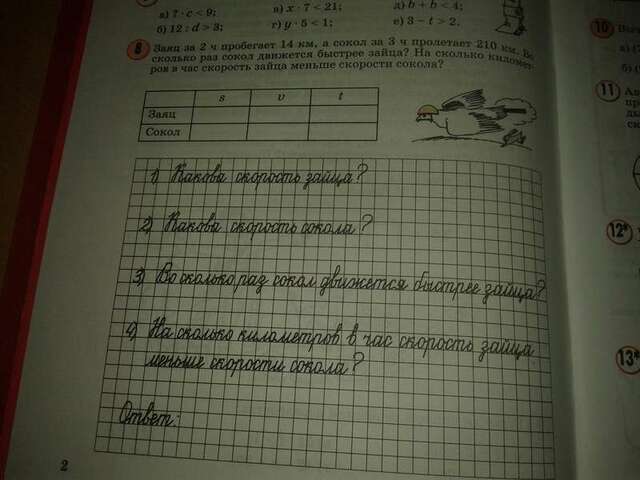 а) 7 · c < 9;
в) x · 7 < 21;
д) b + b < 4;
б) 12 : d > 3;
г) y · 5 < 1;
е) 3 − t > 2.
8 Заяц за 2 ч пробегает 14 км, а сокол за 3 ч пролетает 210 км. Во
сколько раз сокол движется быстрее зайца? На сколько километ-
ров в час скорость зайца меньше скорости сокола?
s v t
Заяц
Сокол
1) Какова скорость зайца?
2) Какова скорость сокола?
3) Во сколько раз сокол движется быстрее зайца?
4) На сколько километров в час скорость зайца
меньше скорости сокола?
Ответ:
2
10
11
12*
13*